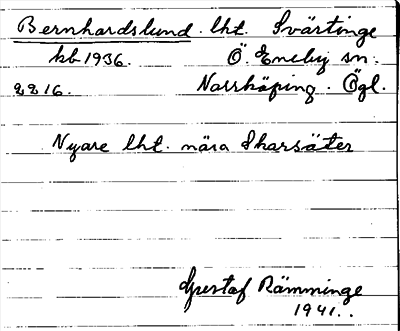 Bernhardslund. lht. Svärtinge
kb 1936. Ö. Eneby sn.
2216. Norrköping. Ögl.
Nyare lht. nära Skarsäter
Gustaf Rämminge
1941..